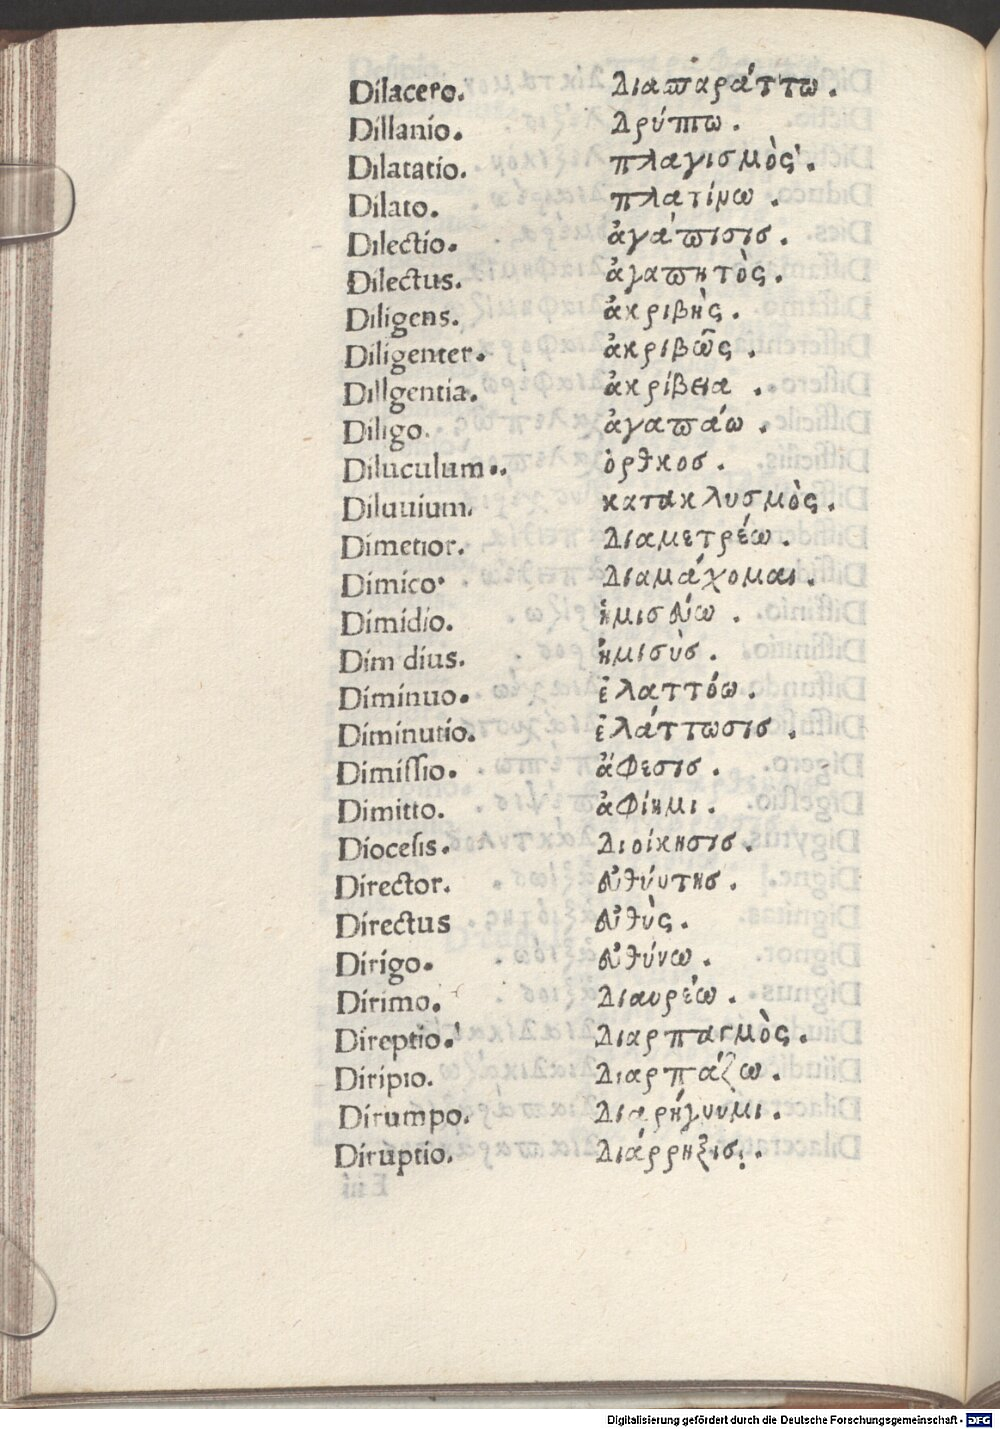 Dilacero. Διαπαράττω.
Dillanio. Δρύπτω.
Dilatatio. πλαγισμὸς.
Dilato. πλατίνω.
Dilectio. ἀγάπισις.
Dilectus. ἀγαπητὸς.
Diligens. ἀκριβὴς.
Diligenter. ἀκριβῶς.
DilIgentia. ἀκρίβεια.
Diligo. ἀγαπάω.
Diluculum. ὀρθκος.
Diluuium. κατακλυσμὸς.
Dimetior. Διαμετρέω.
Dimico. Διαμάχομαι.
Dimidio. ἡμισεύω.
Dim dius. ἡμισὺς.
Diminuo. ἐλαττόω.
Diminutio. ἐλάττωσις.
Dimissio. ἄφεσις.
Dimitto. ἀφίημι.
Diocesis. Διοίκησις.
Director. εὐθύντης.
Directus εὐθὺς.
Dirigo. εὐθύνω.
Dirimo. Διαυρέω.
Direptio. Διαρπαγμὸς.
Diripio. Διαρπάζω.
Dirumpo. Διαρήγνυμι.
Diruptio. Διάρρηξις.
Digitalisierung gefördert durch die Deutsche Forschungsgemeinschaft - DFG